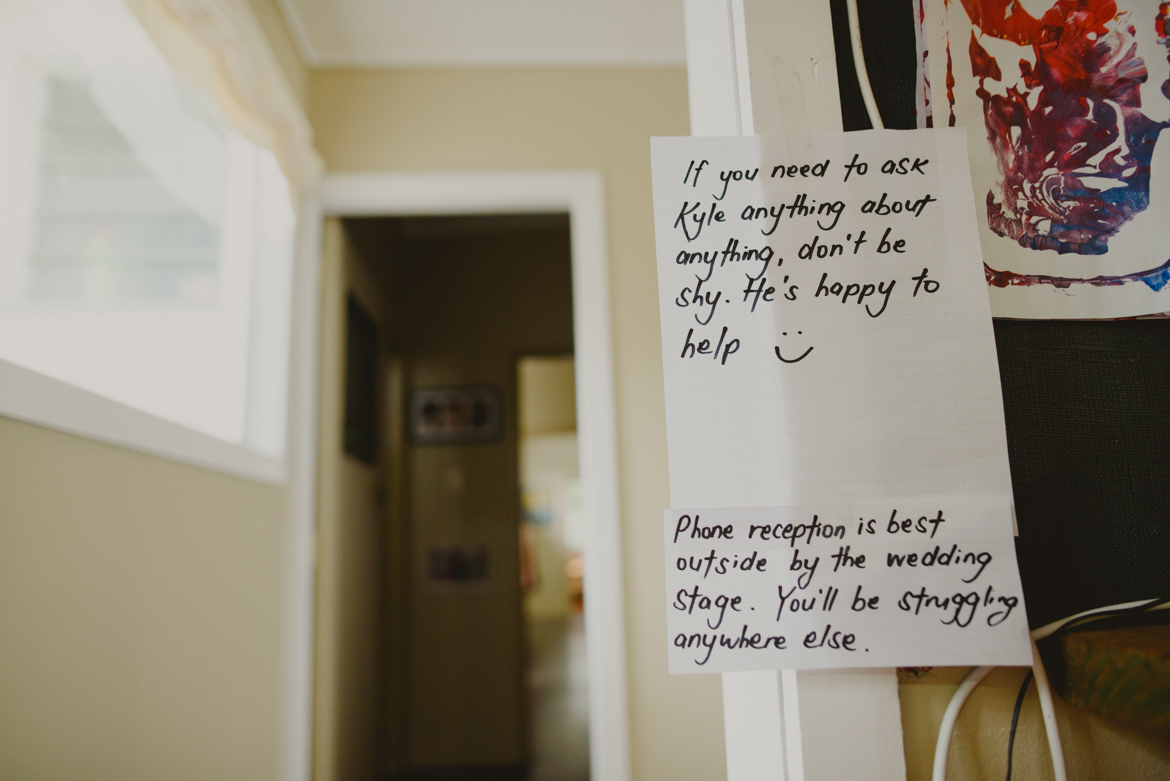 If you need to ask
Kyle anything about
anything, don't be
shy. He's happy to
help
Phone reception is best
outside by the wedding
stage. You'll be struggling
anywhere else.